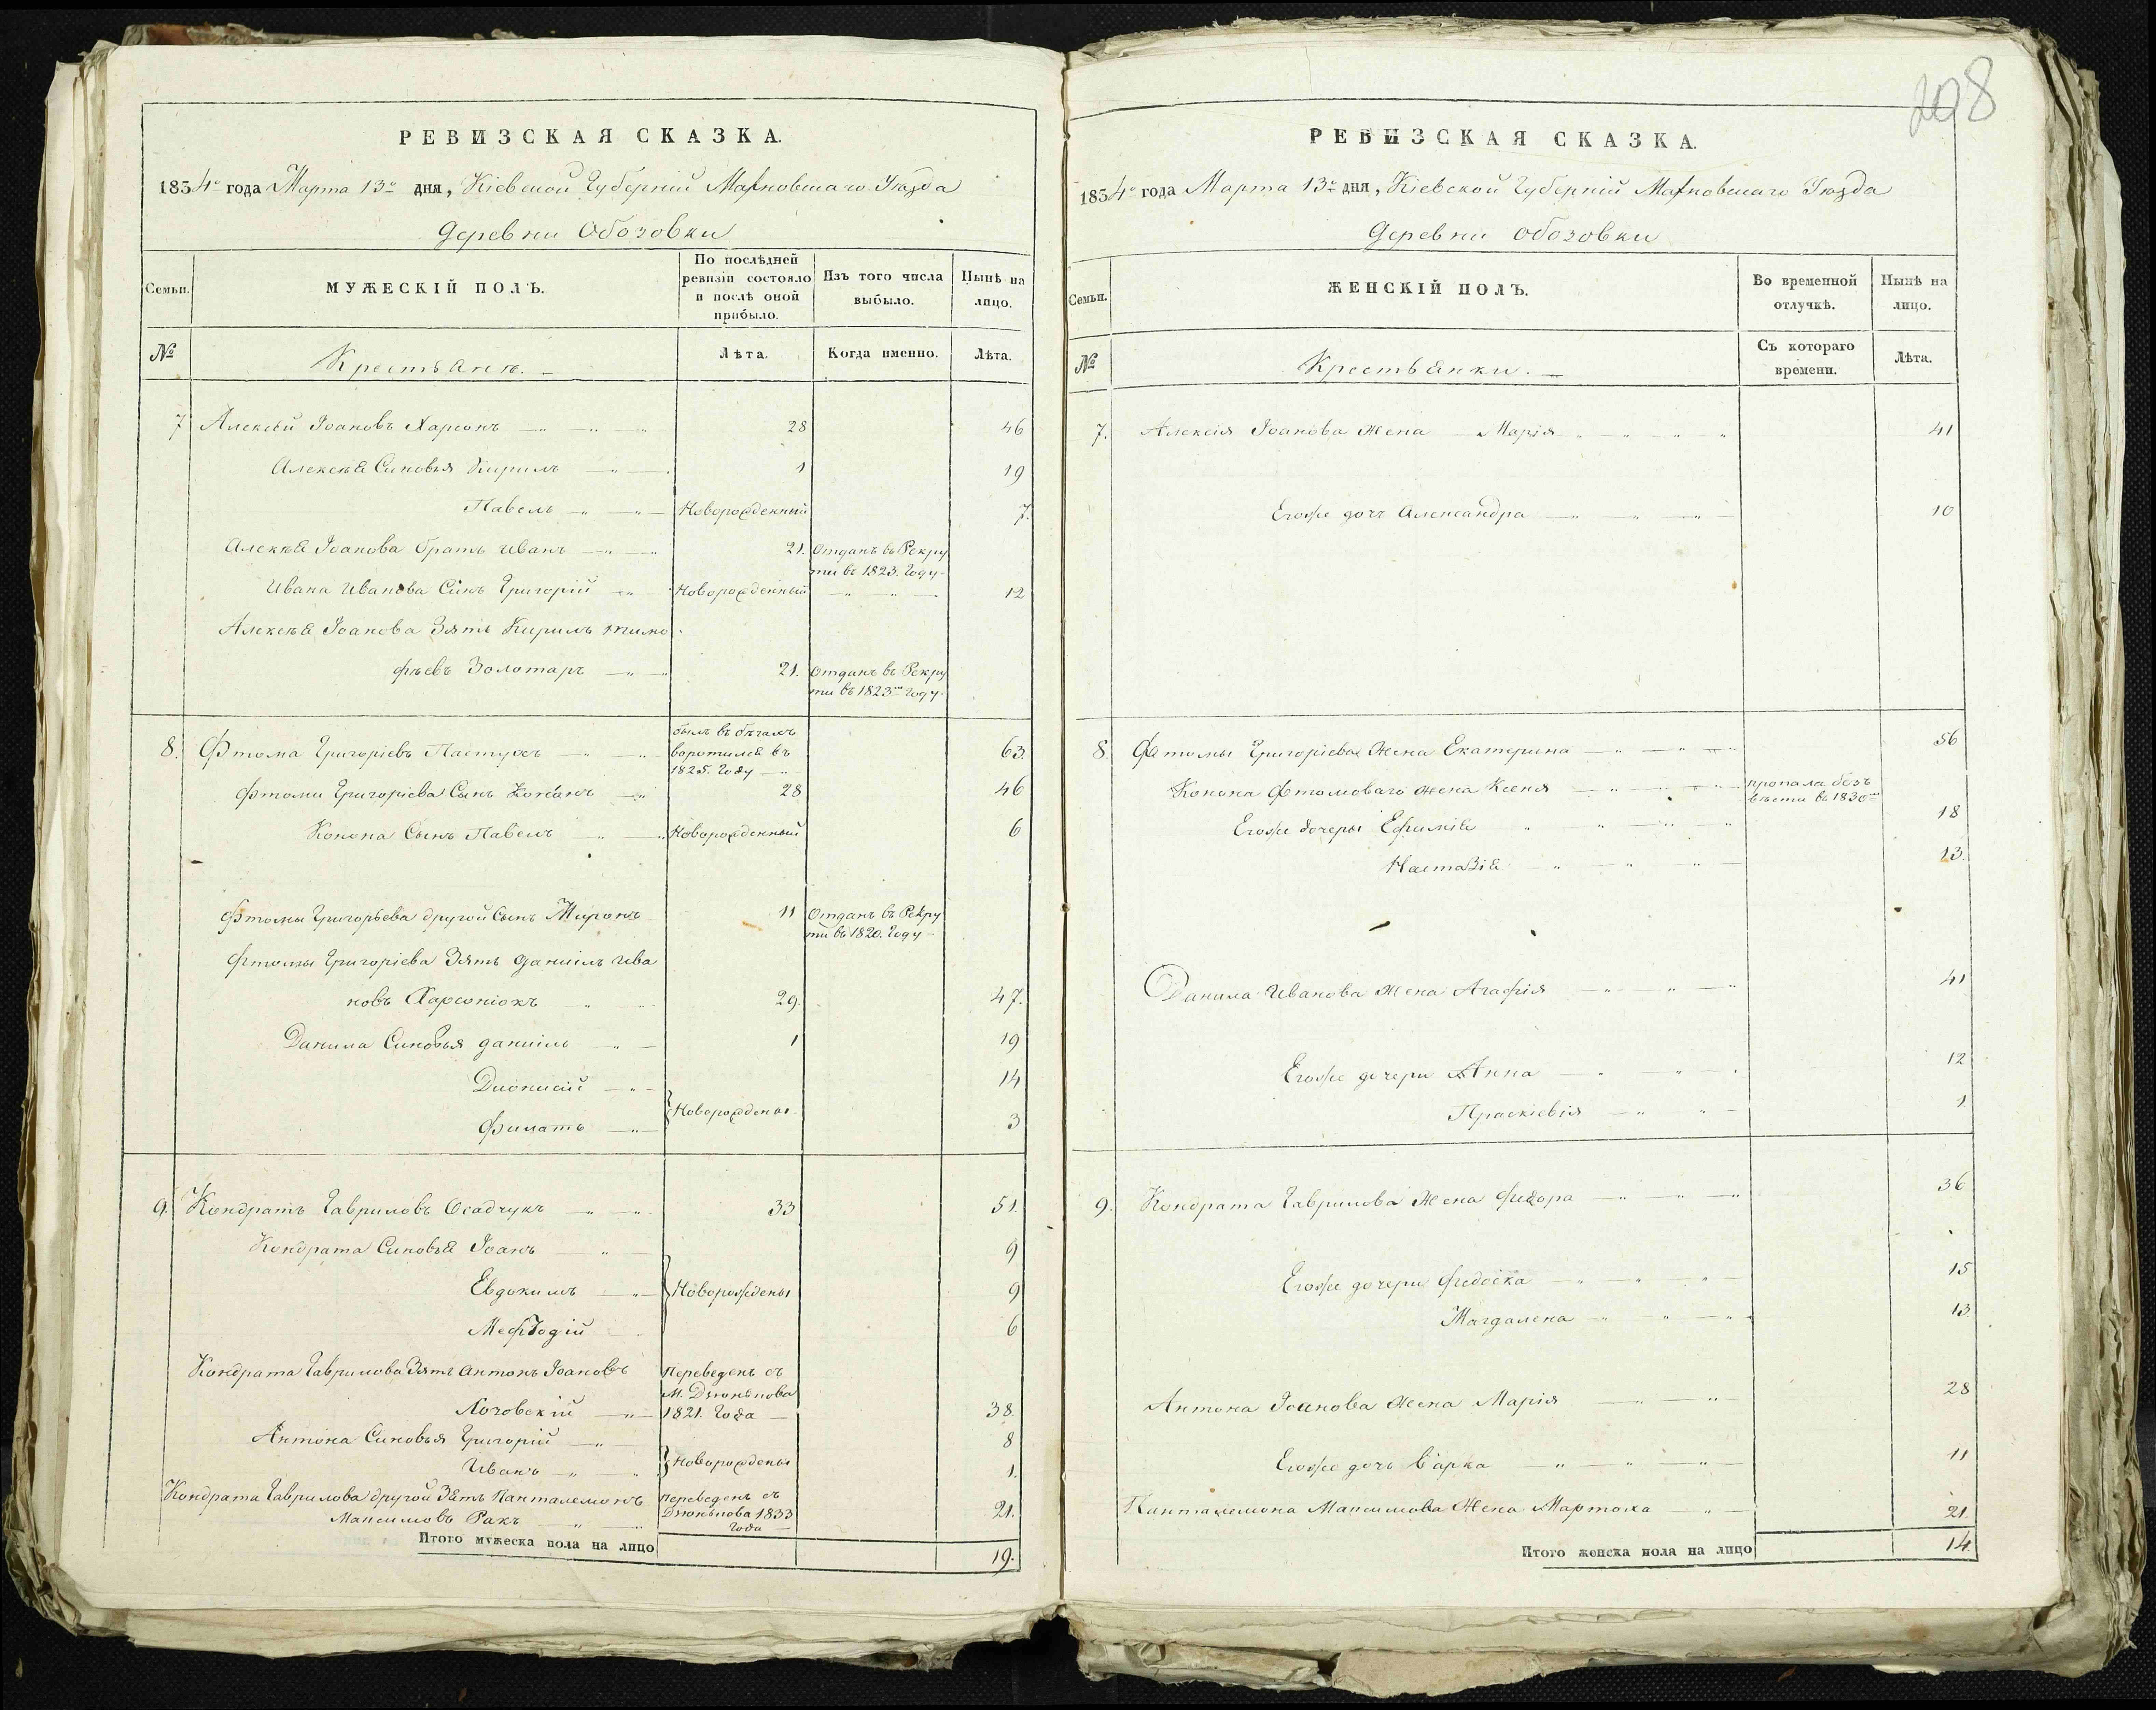 РЕВИЗСКАЯ СКАЗКА.
1834го года Марта 13го дня, Кіевской Губерніи Махновскаго Уѣзда
Деревни Обозовки
Семьи.
МУЖЕСКІЙ ПОЛЪ.
По послѣдней
ревизіи состояло
и послѣ оной
прибыло.
Изъ того числа
выбыло.
Нынѣ на
лицо.
№
Крестьянѣ.
Лѣта.
Когда именно.
Лѣта.
7 Алексѣй Іоановъ Харсонъ 28 46
Алексѣя Синовья Кирилъ 1 19
Павелъ Новорожденный 7.
Алексѣя Іоанова братъ Иванъ 21. Отданъ въ Рекру
ти въ 1823. Году
Ивана Иванова Синъ Григорій Новорожденный 12
Алексѣя Іоанова Зять Кирилъ Тимо
фѣевъ Золотаръ 21. Отданъ въ Рекру
ти въ 1823м Году
былъ въ бѣгахъ
8. Фтома Григоріевъ Пастухъ воротился въ 63.
1825. Году
Фтоми Григоріева Сынъ Конанъ 28 46
Конона Сынъ Павелъ Новорожденный 6
Фтомы Григорьева другой Сынъ Миронъ 11 Отданъ въ Рекру
ти въ 1820. Году
Фтомы Григоріева Зять Даніилъ Ива
новъ Харсонюкъ 29. 47.
Данила Синовья Даніилъ 1 19
Дионисій 14
Новорождены
Филатъ 3
9. Кондратъ Гавриловъ Осадчукъ 33 51.
Кондрата Синовья Іоанъ 9
Евдокимъ Новорождены 9
Мефодій 6
Кондрата Гаврилова Зять Антонъ Іоановъ переведенъ съ
М. Дзюнькова
1821. Года 38.
Антона Синовья Григорій 8
Новорождены
Иванъ 1.
Кондрата Гаврилова другой Зять Панталемонъ переведенъ съ
Максимовъ Ракъ Дзюнькова 1833 21.
Года
Итого мужеска пола на лицо 19.
208
РЕВИЗСКАЯ СКАЗКА.
1834го года Марта 13го дня, Кіевской Губерніи Махновскаго Уѣзда
Деревни Обозовки
Семьи.
ЖЕНСКІЙ ПОЛЪ.
Во временной
отлучкѣ.
Нынѣ на
лицо.
№
Крестьянки.
Съ котораго
времени.
Лѣта.
7. Алексія Іоанова Жена Марія 41
Егоже дочъ Александра 10
8. Фтомы Григоріева Жена Екатерина 56
Конона Фтомоваго жена Ксеня пропала безъ
вѣсти въ 1830м
Егоже дочеры Ефимія 18
Настазія 13.
Данила Иванова Жена Агафія 41
Егоже дочери Анна 12
Праскіевія 1
9. Кондрата Гаврилова Жена Фидора 36
Егоже дочери Федоска 15
Магдалена 13
Антона Іоанова Жена Марія 28
Егоже дочь Варка 11
Панталемона Максимова Жена Мартоха 21.
Итого женска пола на лицо 14.